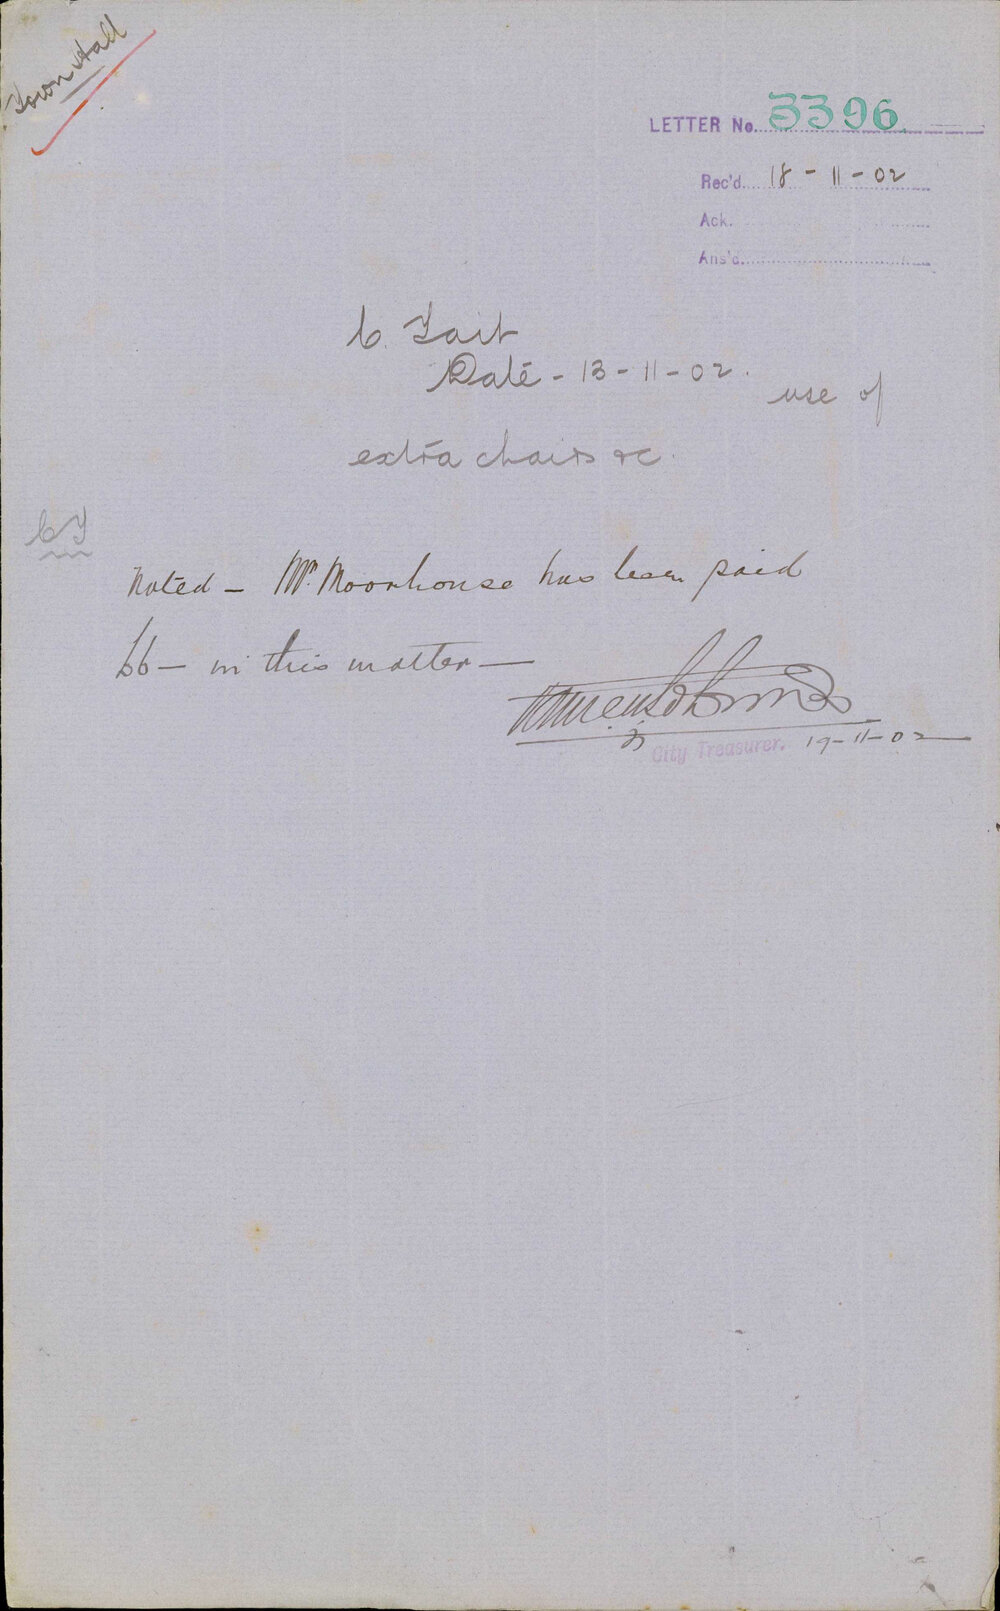 Town Hall
LETTER No. 3396
Rec'd. 18-11-02
Ack.
Ans'd.
C. Tait
Date - 13-11-02.
use of
extra chairs &c.
CT
Noted - Mr. Moorhouse has been paid
£6 - in this matter -
City Treasurer. 19-11-02